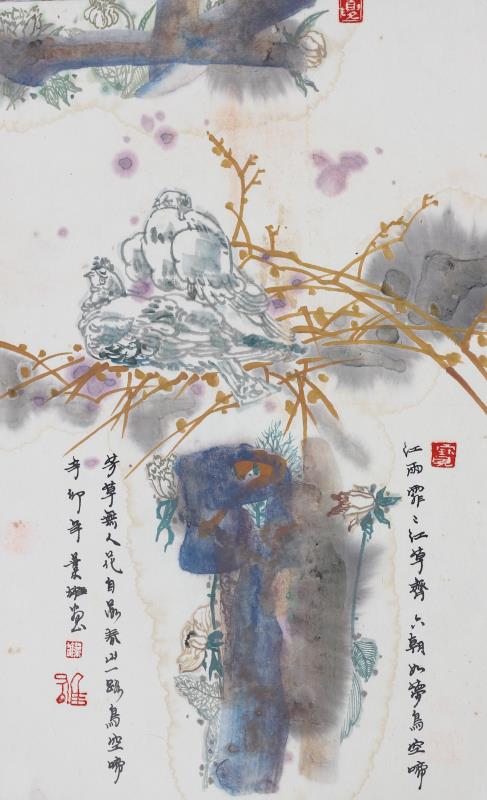 江雨霏〻江草齊 六朝如夢鳥空啼
芳草無人花自落 春山一路鳥空啼
辛卯年 畫